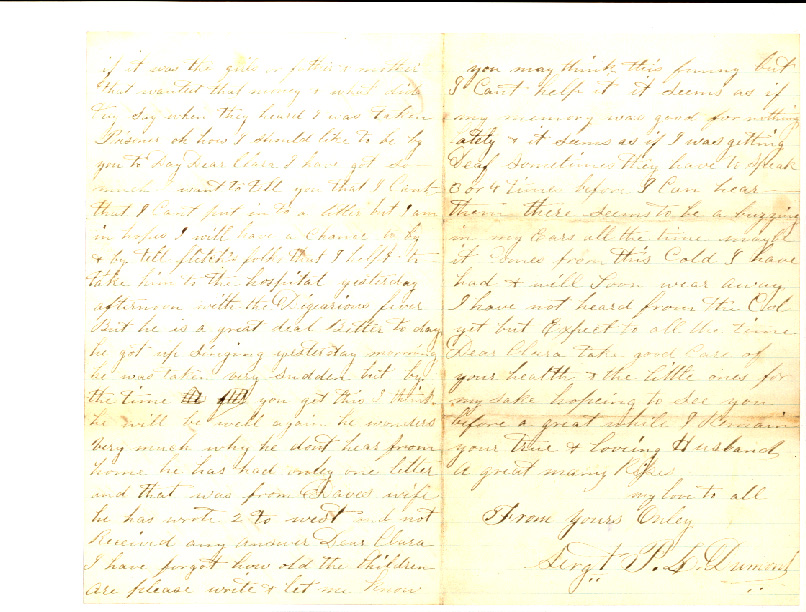 if it was the girls or father & mother
that wanted that money & what did
they say when they heard I was taken
Prisner oh how I should like to be by
you to day Dear Clara I have got so
much I want to tell you that I Cant
that I Cant put in to a letter but I am
in hopes I will have a Chance by
& by tell fletch folks that I helpt to
take him to the hospital yesterday
afternoon with the fever
But he is a great deal Better to day
he got up Singing yesterday morning
he was taken very Sudden but by
the time you get this I think
he will be well again he wonders
very much why he dont hear from
home he has had onley one letter
and that was from wife
he has wrote 2 to west and not
Received any answer Dear Clara
I have forgot how old the Children
are please write & let me know
you may think this funny but
I Cant help it it seems as if
my memory was good for nothing
lately & it seems as if I was getting
Deaf sometimes they have to speak
3 or 4 times before I Can hear
them there seems to be a buzzing
in my Ears all the time maybe
it Comes from this Cold I have
had & will Soon wear away
I have not heard from the Col
yet but Expect to all the time
Dear Clara take good Care of
your health & the little ones for
my sake hopeing to See you
before a great while I Remain
your True & loveing Husband
a great many Kises
my love to all
From yours Onley
Sergt P.